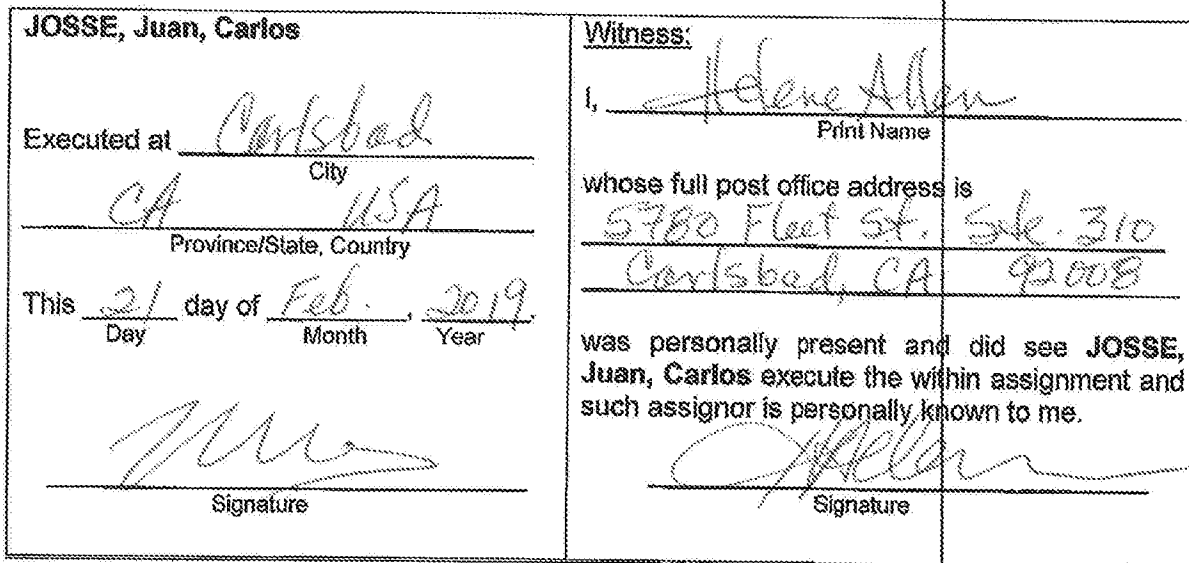 JOSSE, Juan, Carlos
Executed at Carlsbad
City
CA USA
Province/State, Country
This 21 day of Feb., 2019.
Day Month Year
Signature
Witness:
I, Helene Allen
Print Name
whose full post office address is
5780 Fleet St. Ste. 310
Carlsbad, CA 92008
was personally present and did see JOSSE,
Juan, Carlos execute the within assignment and
such assignor is personally known to me.
Signature